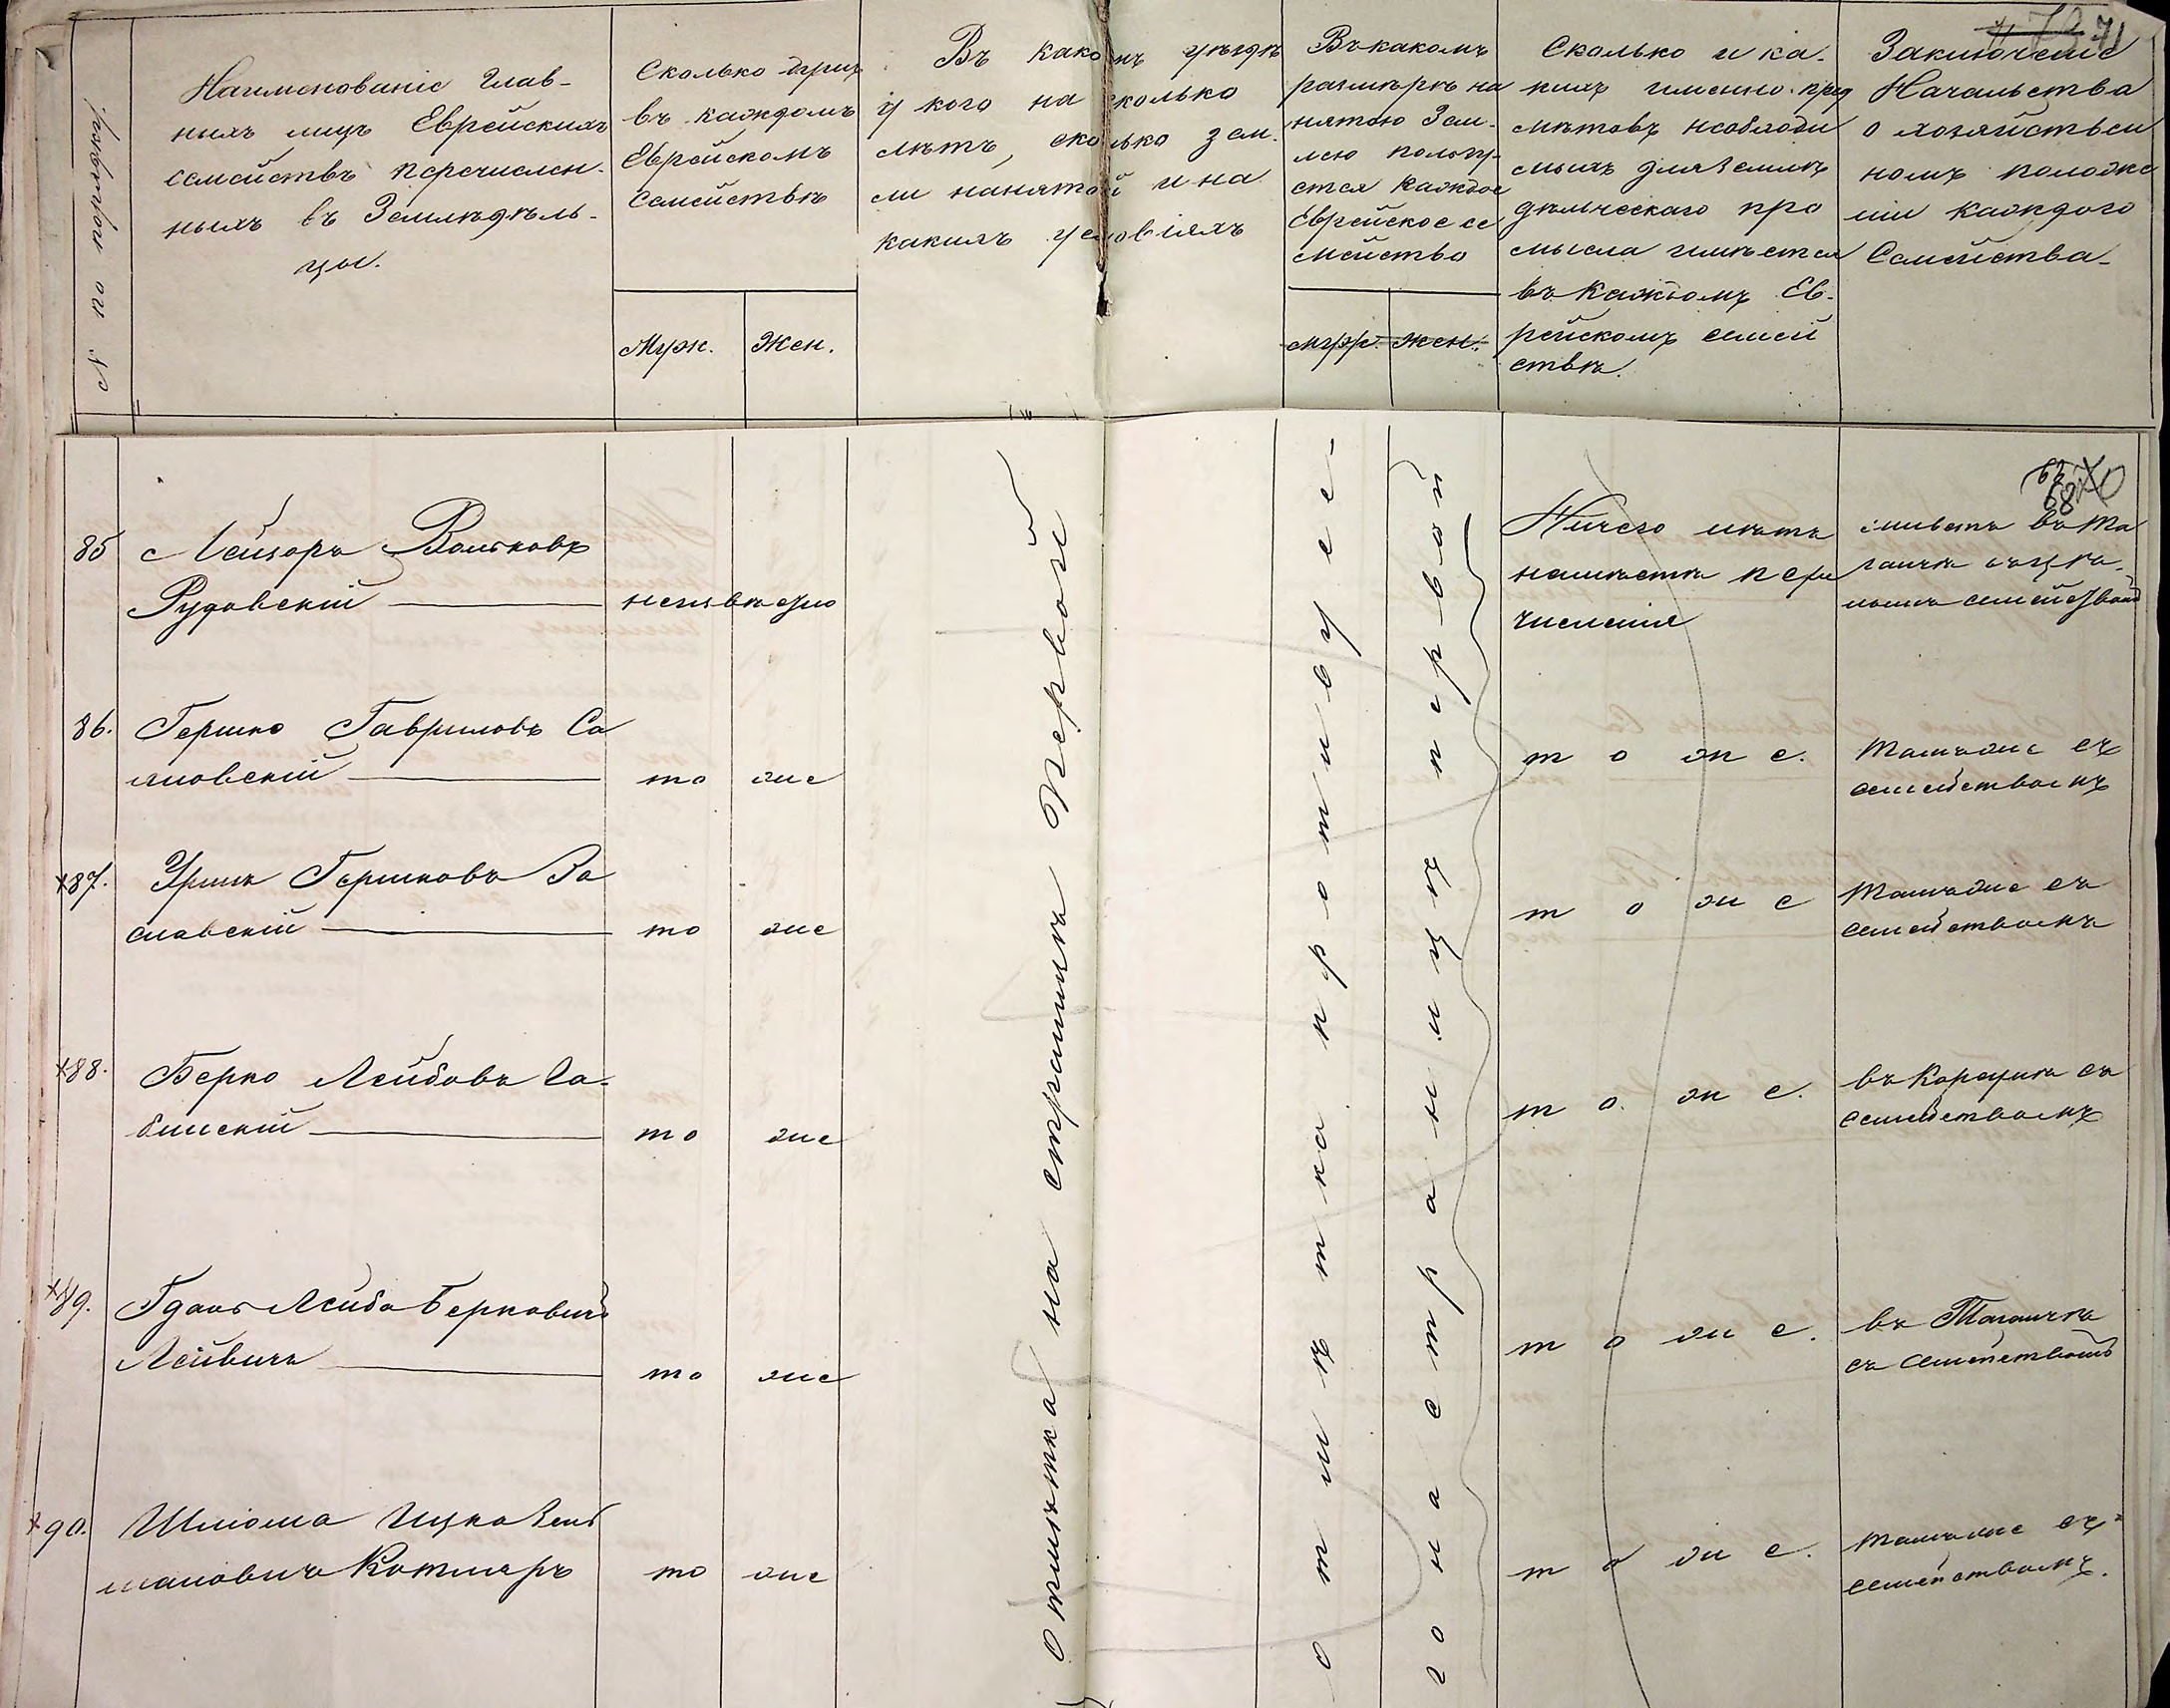 № по порядку
Наименованіе глав-
ныхъ лицъ Еврейскихъ
семействъ перечислен-
ныхъ въ Земледѣль-
цы.
Сколько душъ
въ каждомъ
Еврейскомъ
Семействѣ
Муж. Жен.
Въ какомъ уѣздѣ
у кого на сколько
лѣтъ, сколько зем-
ли нанятой и на
какихъ условіяхъ
Въ какомъ
размѣрѣ на
нятою Зем-
лею пользу-
ется каждое
Еврейское се
мейство
муж. жен.
Сколько и ка-
кихъ именно пред
метовъ необходи
мыхъ для земле
дѣльческаго про
мысла имѣется
въ каждомъ Ев-
рейскомъ семей
ствѣ.
Заключеніе
Начальства
о хозяйствен
номъ положе
ніи каждого
Семейства
71
85
Лейзоръ Вольковъ
Рудовскій
неизвѣстно
Ничего нѣтъ
числения
живетъ въ Та
ганчѣ съ
семействомъ
86.
Гершко Гавриловъ Са
ловскій
то же
то же.
тамъ же съ
семействомъ
87.
Гершковъ За
славскій
то же
то же
тамъ же съ
семействомъ
88.
Берко Лейбовъ Са-
бинскій
то же
то же.
въ Корсунѣ съ
семействомъ
89.
Лейба Берковичъ
Лейвичъ
то же
то же.
въ Таганчѣ
съ семействомъ
90.
Шліома Ицко Зель
мановичъ Котляръ
то же
то же.
тамъ же съ
семействомъ.
Отмѣтка на страницѣ Первой
отмѣтка противу се-
го на страницѣ первой